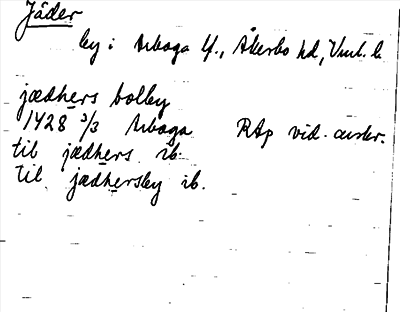 Jäder
by i Arboga lf., Åkerbo hd, Vml. l.
jædhers bolby
1428 3/3 Arboga RAp vid. avskr.
til jædhers ib.
til jædhersby ib.